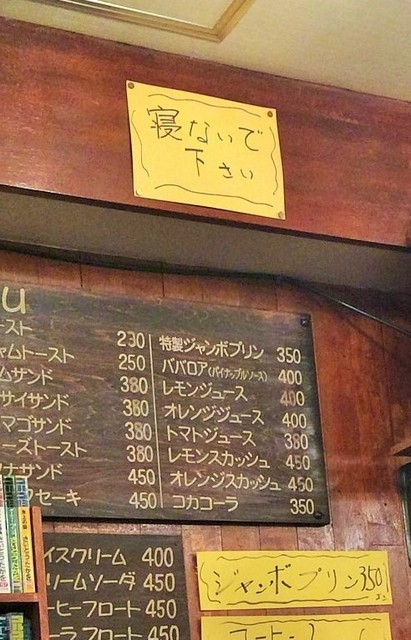 寝ないで
下さい
u
ースト 230
ャムトースト 250
ムサンド 380
サイサンド 380
マゴサンド 380
ーズトースト 380
ナサンド 450
クセーキ 450
特製ジャンボプリン 350
ババロア(パイナップルソース) 400
レモンジュース 400
オレンジジュース 400
トマトジュース 380
レモンスカッシュ 450
オレンジスカッシュ 450
コカコーラ 350
イスクリーム 400
リームソーダ 450
ーヒーフロート 450
ーラフロート 450
ジャンボプリン350